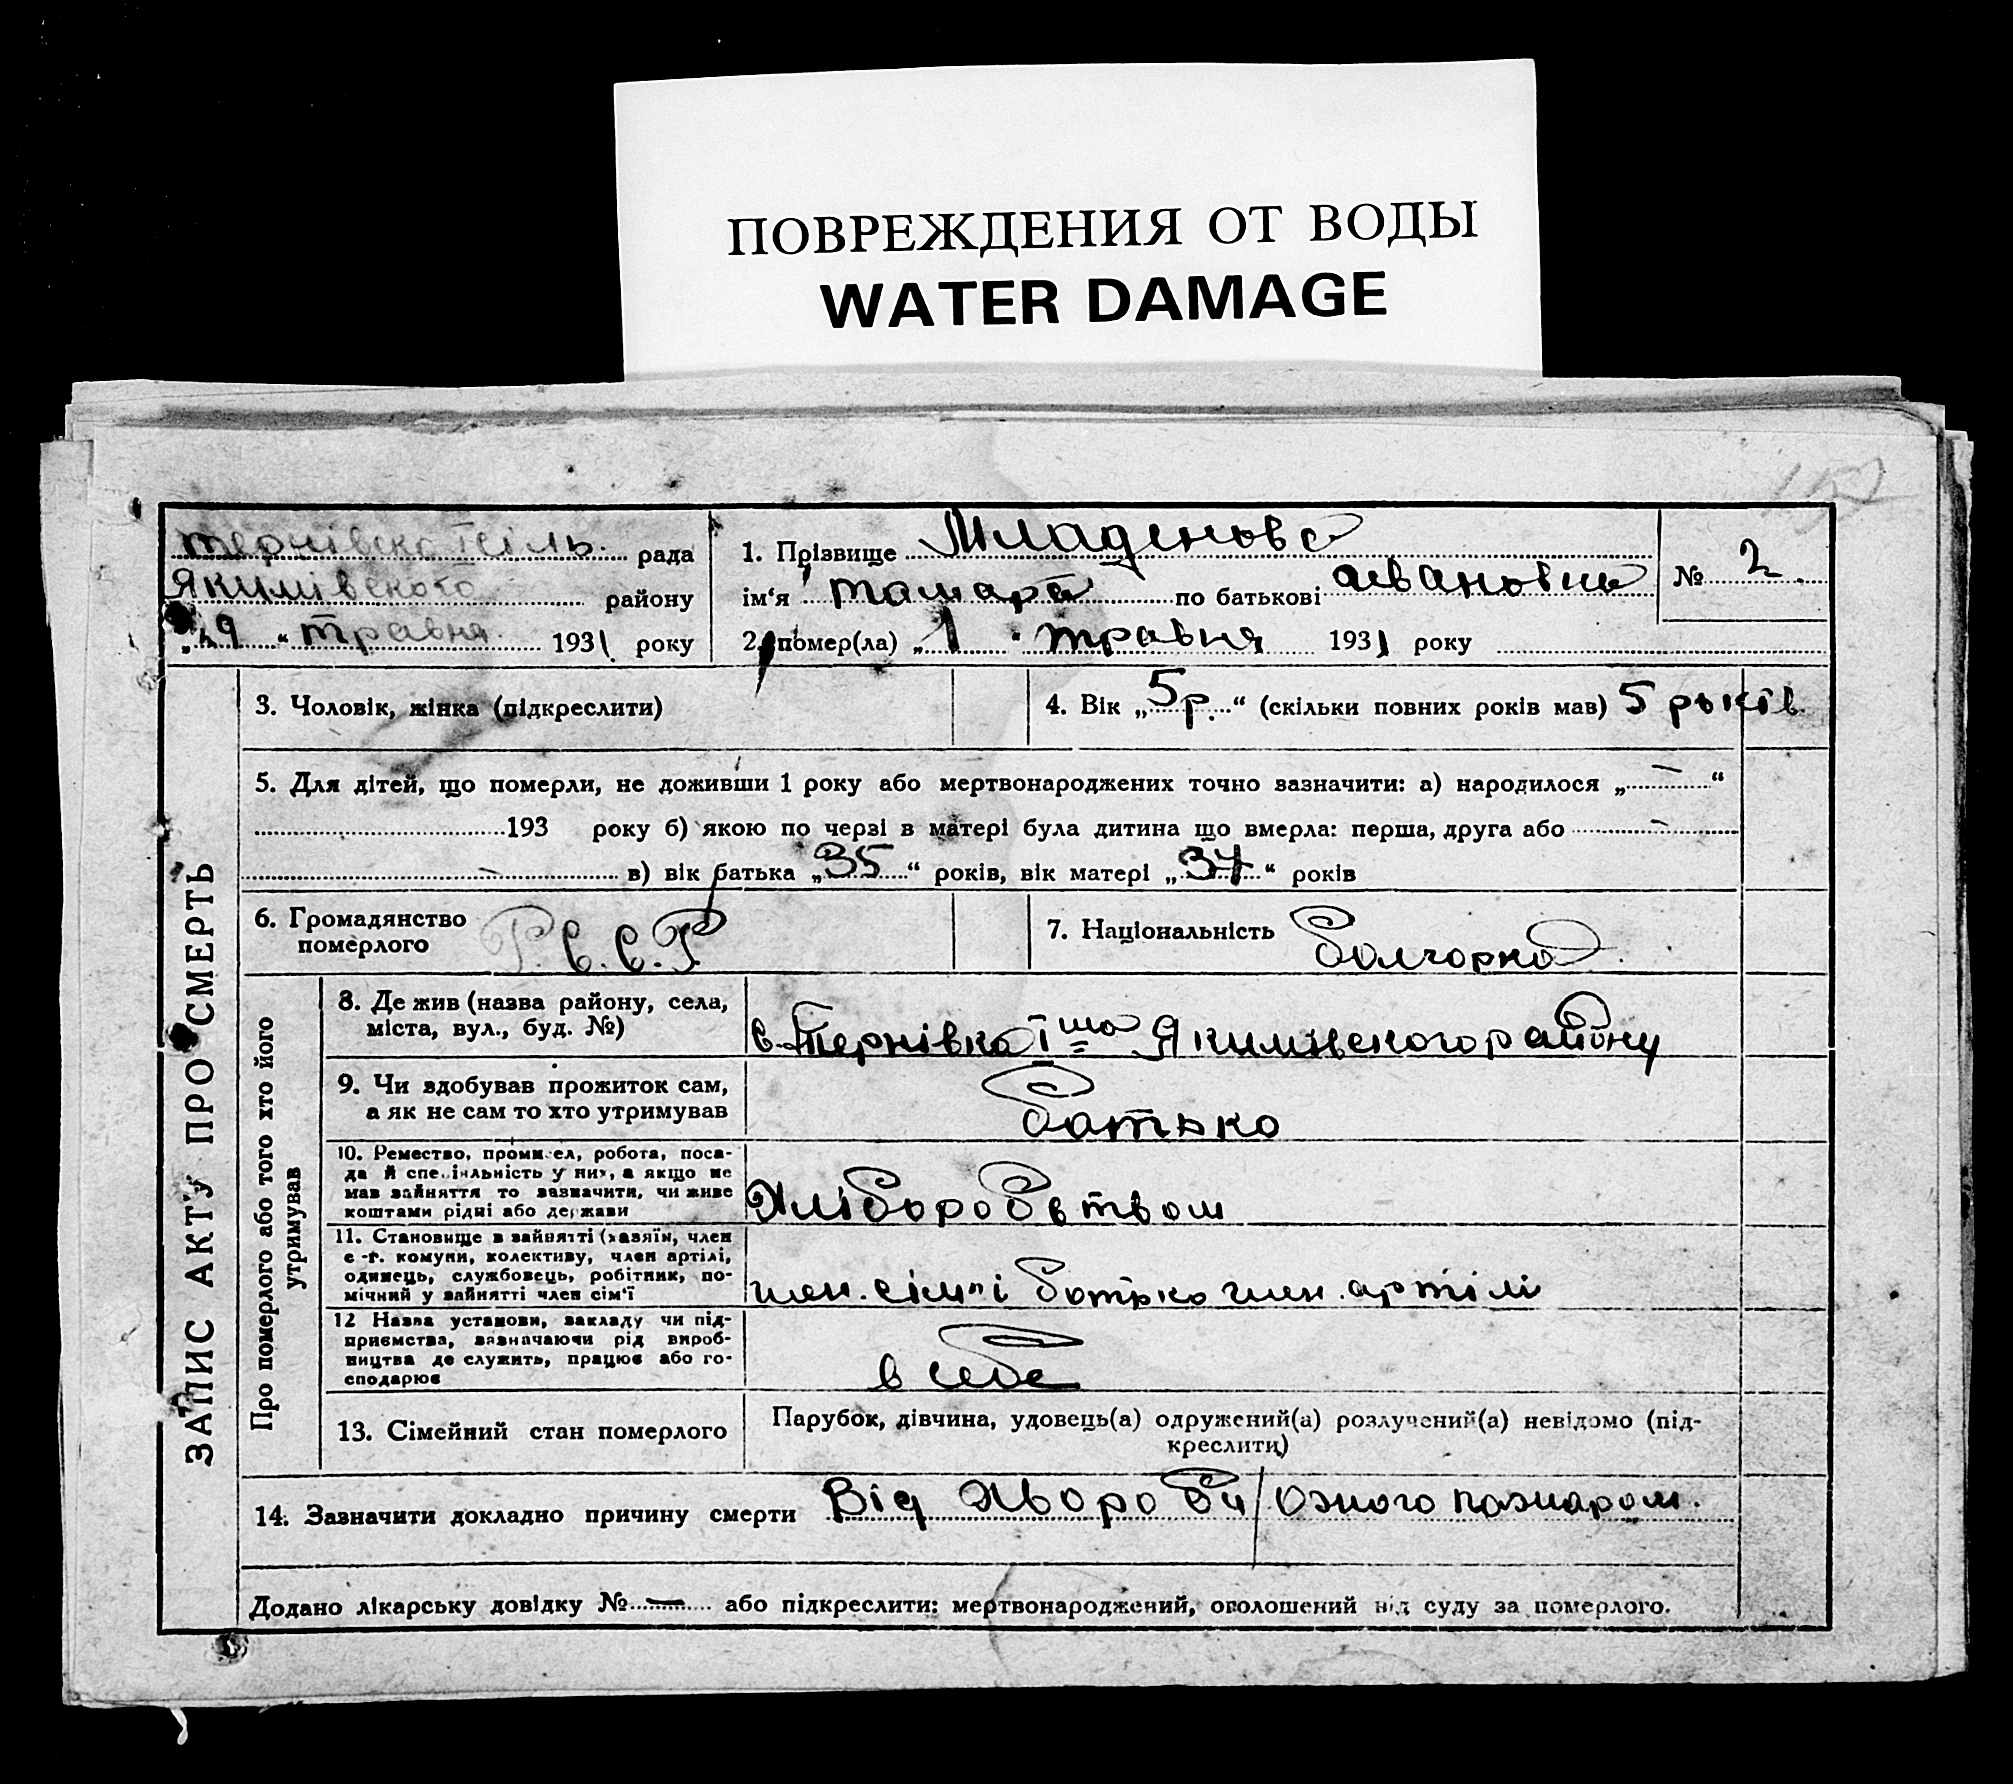 ПОВРЕЖДЕНИЯ ОТ ВОДЫ
WATER DAMAGE
рада
Якимівського району
„ 9 “ травня 1931 року
1. Прізвище Младенова
ім‘я Тамара по батькові Ивановна
2. помер(ла) „ 1 “ травня 1931 року
№ 2.
ЗАПИС АКТУ ПРО СМЕРТЬ
3. Чоловік, жінка (підкреслити)
4. Вік „ 5 р. “ (скільки повних років мав) 5 рыків
5. Для дітей, що померли, не доживши 1 року або мертвонароджених точно зазначити: а) народилося „ — “
193 року б) якою по черзі в матері була дитина що вмерла: перша, друга або —
— в) вік батька „ 35 “ років, вік матері „ 37 “ років
6. Громадянство
померлого Р.С.С.Р.
7. Національність Болгорка
Про померлого або того хто його
утримував
8. Де жив (назва району, села,
міста, вул., буд. №)
с. Тернівка I ша Якимівского району
9. Чи здобував прожиток сам,
а як не сам то хто утримував
батько
10. Ремество, промисел, робота, поса-
да й спеціяльність у них, а якщо не
мав зайняття то зазначити, чи живе
коштами рідні або держави
Хліборобством
11. Становище в зайнятті (хазяїн, член
с.-г. комуни, колективу, член артілі,
одинець, службовець, робітник, по-
мічний у зайнятті член сім‘ї
член. сімпі батько член. артілі
12 Назва установи, закладу чи під-
приємства, зазначаючи рід вироб-
ництва де служить, працює або го-
сподарює
в себе
13. Сімейний стан померлого
Парубок, дівчина, удовець(а) одружений(а) розлучений(а) невідомо (під-
креслити)
14. Зазначити докладно причину смерти Від Хвороби
Додано лікарську довідку № — або підкреслити: мертвонароджений, оголошений від суду за померлого.